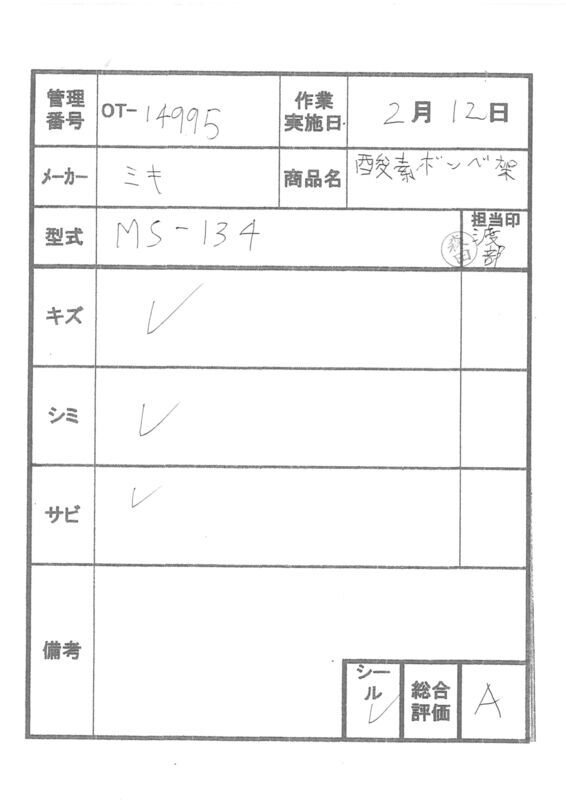 管理番号 OT-14995 作業実施日 2月12日
メーカー ミキ 商品名 酸素ボンベ架
型式 MS-134 担当印
渡部
キズ ✓
シミ ✓
サビ ✓
備考
シール ✓ 総合評価 A